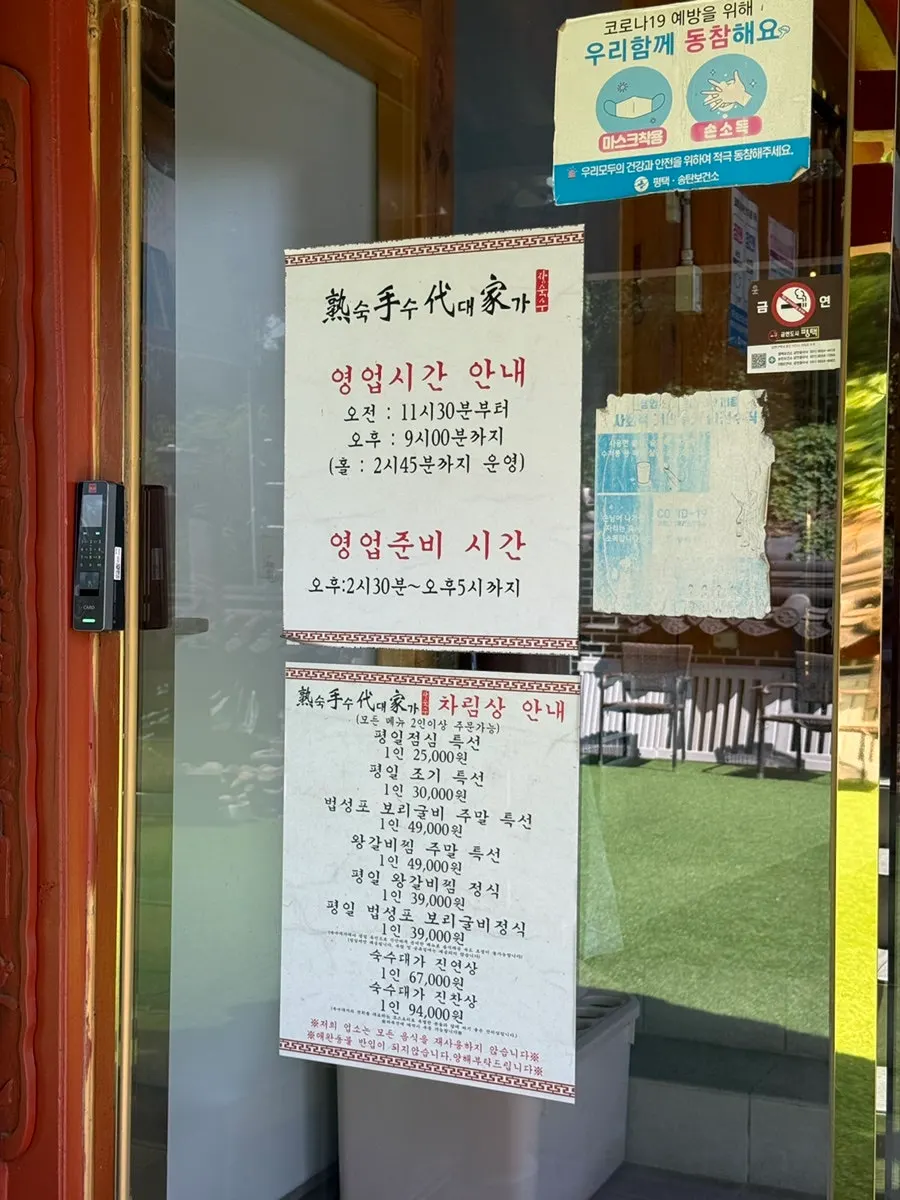 코로나19 예방을 위해
우리함께 동참해요
마스크착용
손소독
우리모두의 건강과 안전을 위하여 적극 동참해주세요.
평택·송탄보건소
금 연
금연도시 평택
熟숙手수代대家가
영업시간 안내
오전 : 11시30분부터
오후 : 9시00분까지
(홀 : 2시45분까지 운영)
영업준비 시간
오후:2시30분~오후5시까지
COVID-19
熟숙手수代대家가 차림상 안내
(모든 메뉴 2인이상 주문가능)
평일점심 특선
1인 25,000원
평일 조기 특선
1인 30,000원
법성포 보리굴비 주말 특선
1인 49,000원
왕갈비찜 주말 특선
1인 49,000원
평일 왕갈비찜 정식
1인 39,000원
평일 법성포 보리굴비정식
1인 39,000원
숙수대가 진연상
1인 67,000원
숙수대가 진찬상
1인 94,000원
※저희 업소는 모든 음식을 재사용하지 않습니다※
※애완동물 반입이 되지않습니다.양해부탁드립니다※
CARD